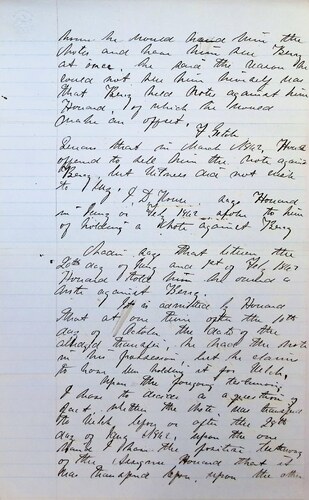 him he would hand him the
Notes and have him see Berry
at once, he said the reason he
could not see him himself was
that Berry held Notes against him
Howard, of which he would
make an offset.
Swears that in March 1842, Howard
offered to sell him the Note against
Berry, but Witness did not wish
to buy. J. D. says Howard
in or Feby 1842 spoke to him
of holding a Note against Berry
says that between the
20th day of and 1st of Feby 1842
Howard told him he owned a
Note against Berry.
It is admitted by Howard
that at one time after the
day of the date of the
alledged transfer, he had the Note
in his possession, but he claims
to have been holding it for Welch.
Upon the forgoing testimony
I have to decide as a question of
fact, whether the Note was transferred
to Welch before or after the 28th
day of 1842, upon the one
hand I have the positive testimony
of the Howard that it
was transferred before, upon the other